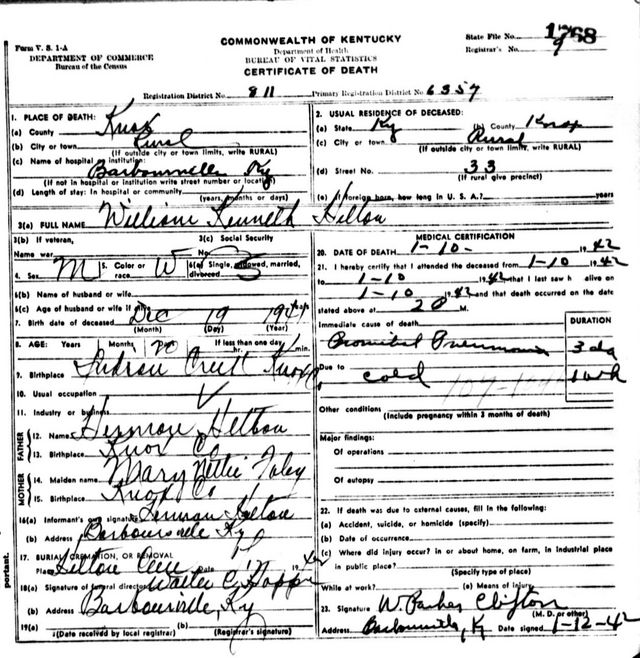 Form V. S. 1-A
DEPARTMENT OF COMMERCE
Bureau of the Census
COMMONWEALTH OF KENTUCKY
Department of Health
BUREAU OF VITAL STATISTICS
CERTIFICATE OF DEATH
State File No. 1768
Registrar's No. 9
Registration District No. 811 Primary Registration District No. 6357
1. PLACE OF DEATH:
(a) County Knox
(b) City or town Rural
(If outside city or town limits, write RURAL)
(c) Name of hospital or institution:
Barbourville Ky
(If not in hospital or institution write street number or location)
(d) Length of stay: In hospital or community (years, months or days)
2. USUAL RESIDENCE OF DECEASED:
(a) State Ky (b) County Knox
(c) City or town Rural
(If outside city or town limits, write RURAL)
(d) Street No. 33
(If rural give precinct)
(e) If foreign born, how long in U. S. A.? years
3(a) FULL NAME William Kenneth Helton
3(b) If veteran,
Name war
3(c) Social Security
No.
4. Sex M 5. Color or race W 6(a) Single, widowed, married, divorced
6(b) Name of husband or wife
6(c) Age of husband or wife if alive years
7. Birth date of deceased Dec 19 1941
(Month) (Day) (Year)
8. AGE: Years Months Days If less than one day hr. min.
9. Birthplace Creek Knox
10. Usual occupation
11. Industry or business
FATHER
12. Name Herman Helton
13. Birthplace Knox Co
MOTHER
14. Maiden name Mary Nellie Foley
15. Birthplace Knox Co
16(a) Informant's own signature Herman Helton
(b) Address Barbourville Ky
17. BURIAL, CREMATION, OR REMOVAL
Place Helton Cem Date 1942
18(a) Signature of funeral director Walter C Hopper
(b) Address Barbourville, Ky
19(a) (b)
(Date received by local registrar) (Registrar's signature)
MEDICAL CERTIFICATION
20. DATE OF DEATH 1-10- 1942
21. I hereby certify that I attended the deceased from 1-10 1942
to 1-10 1942 that I last saw h alive on
1-10 1942 and that death occurred on the date
stated above at M.
Immediate cause of death
DURATION
Bronchial Pneumonia 3 da
Due to cold 1 wk
Other conditions
(Include pregnancy within 3 months of death)
Major findings:
Of operations
Of autopsy
22. If death was due to external causes, fill in the following:
(a) Accident, suicide, or homicide (specify)
(b) Date of occurrence
(c) Where did injury occur? in or about home, on farm, in industrial place
in public place?
(Specify type of place)
While at work? (e) Means of injury
23. Signature W. Parker Clifton
(M. D. or other)
Address Barbourville, K Date signed 1-12-42
portant.